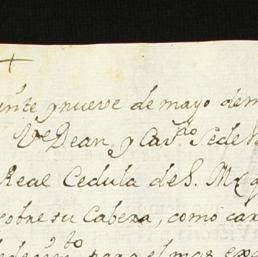 inte y nueve de mayo de m
Vᵉ Dean, y Cavᵈᵒ Sede V
Real Cedula de S. M. q
sobre su Cabeza, como car
para el mas exa